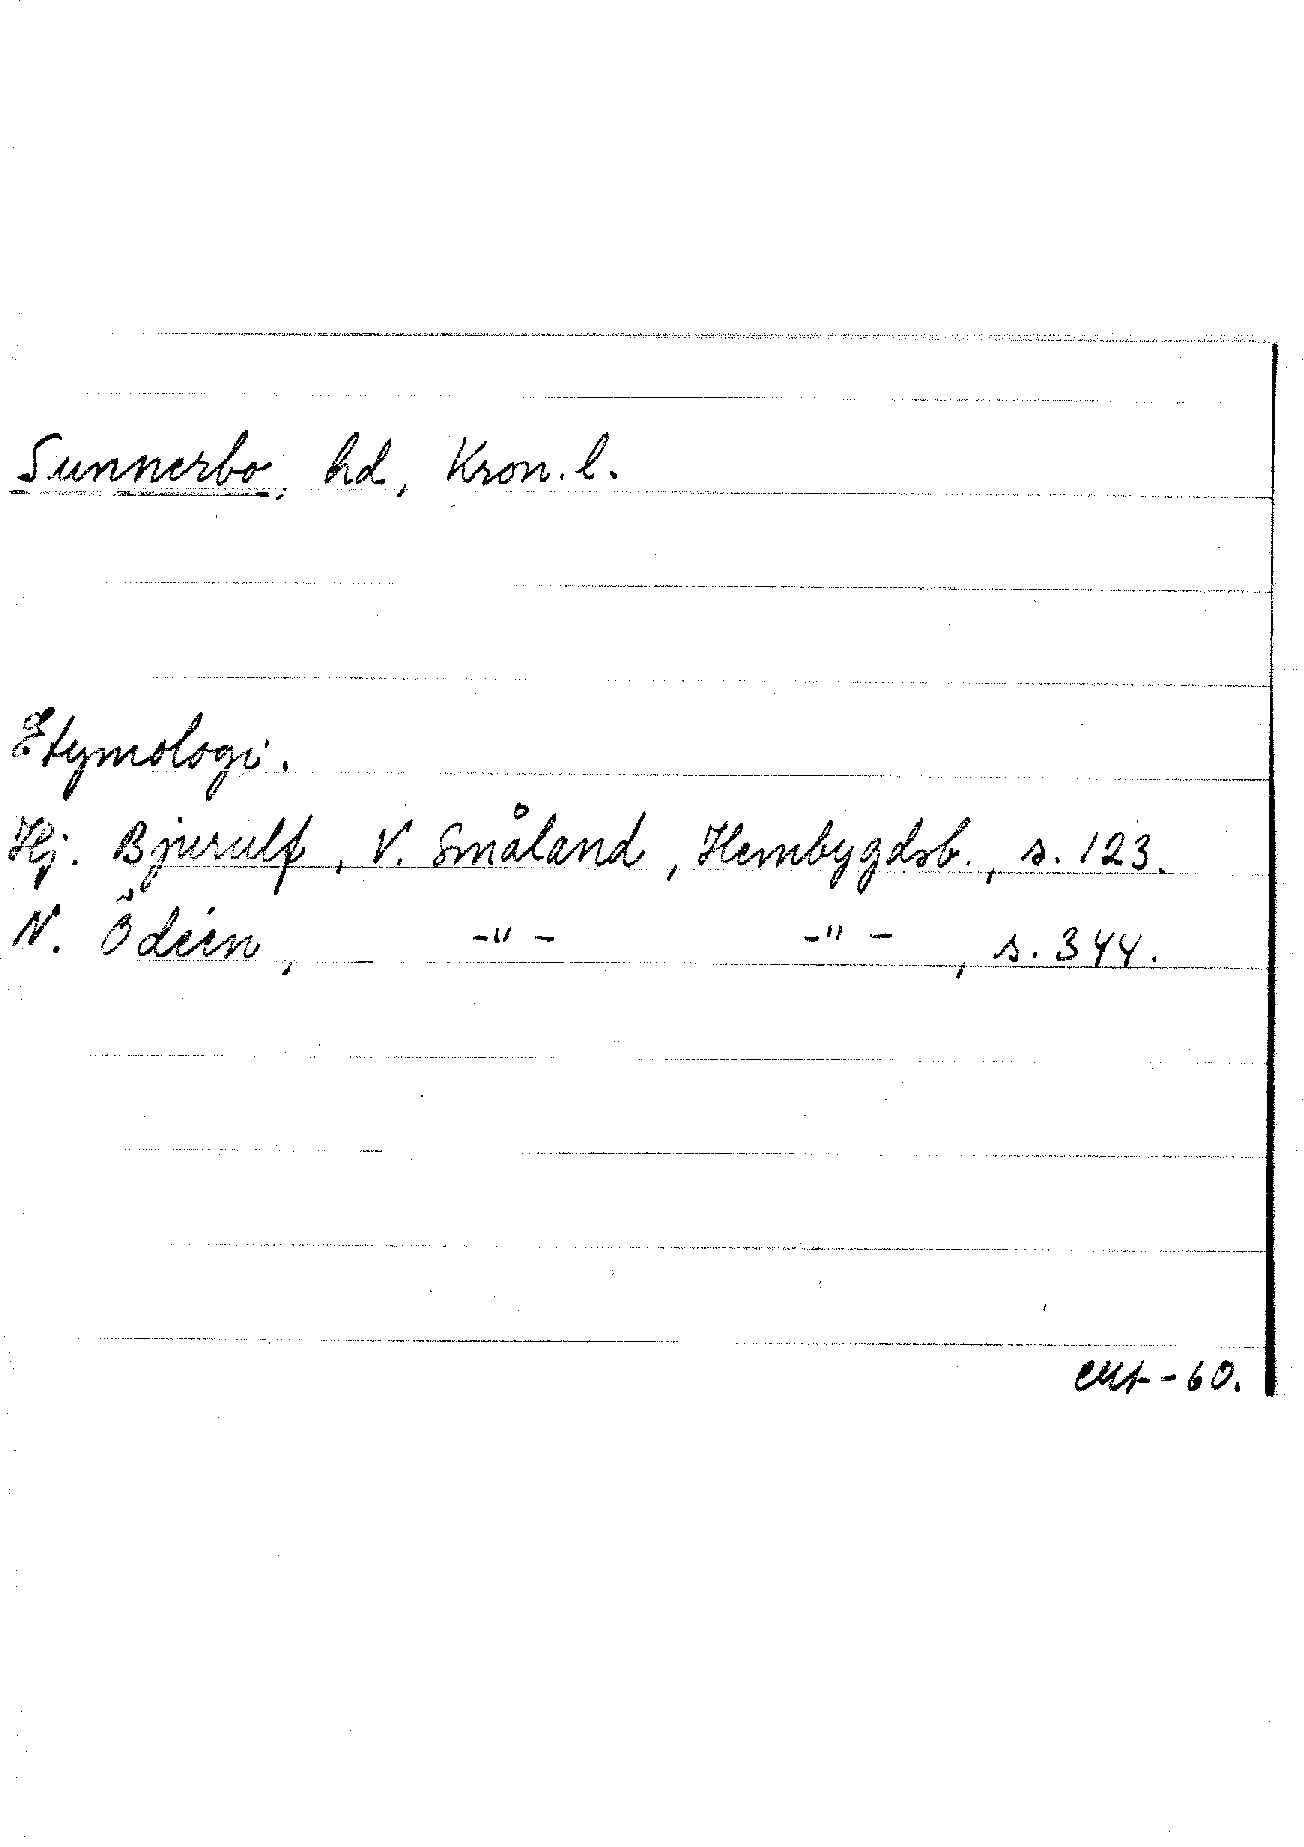 Sunnerbo, hd, Kron. l.
Etymologi.
Hj. Bjurulf, V. Småland, Hembygdsb., s. 123.
N. Ödeen, -"- -"-, s. 344.
-60.